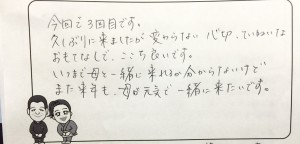 今回で3回目です。
久しぶりに来ましたが変わらない 心切、ていねいな
おもてなしで、ここち良いです。
いつまで母と一緒に来れるか分からないけど
また来年も、母が元気で一緒に来たいです。